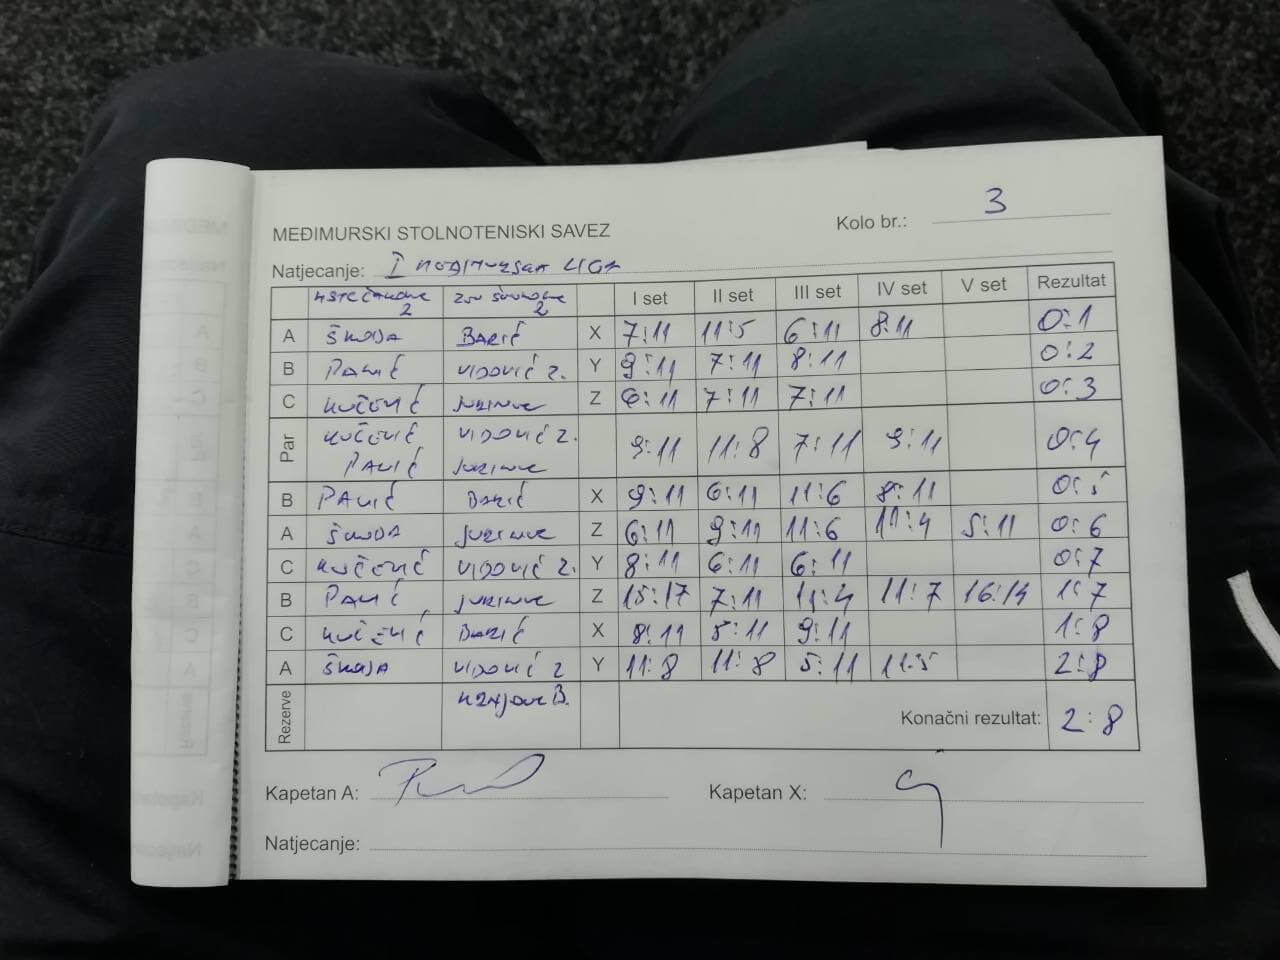 MEĐIMURSKI STOLNOTENISKI SAVEZ
Kolo br.: 3
Natjecanje: I MEĐIMURSKA LIGA
2 2 I set II set III set IV set V set Rezultat
A ŠKODA BARIĆ X 7:11 11:5 6:11 8:11 0:1
B PAVIĆ VIDOVIĆ Z. Y 9:11 7:11 8:11 0:2
C KUČENIĆ Z 6:11 7:11 7:11 0:3
Par KUČENIĆ VIDOVIĆ Z. 9:11 11:8 7:11 9:11 0:4
PAVIĆ
B PAVIĆ BARIĆ X 9:11 6:11 11:6 8:11 0:5
A ŠKODA Z 6:11 9:11 11:6 11:4 5:11 0:6
C KUČENIĆ VIDOVIĆ Z. Y 8:11 6:11 6:11 0:7
B PAVIĆ Z 15:17 7:11 11:4 11:7 16:14 1:7
C KUČENIĆ BARIĆ X 8:11 5:11 9:11 1:8
A ŠKODA VIDOVIĆ Z Y 11:8 11:8 5:11 11:5 2:8
Rezerve B. Konačni rezultat: 2:8
Kapetan A: Kapetan X:
Natjecanje: